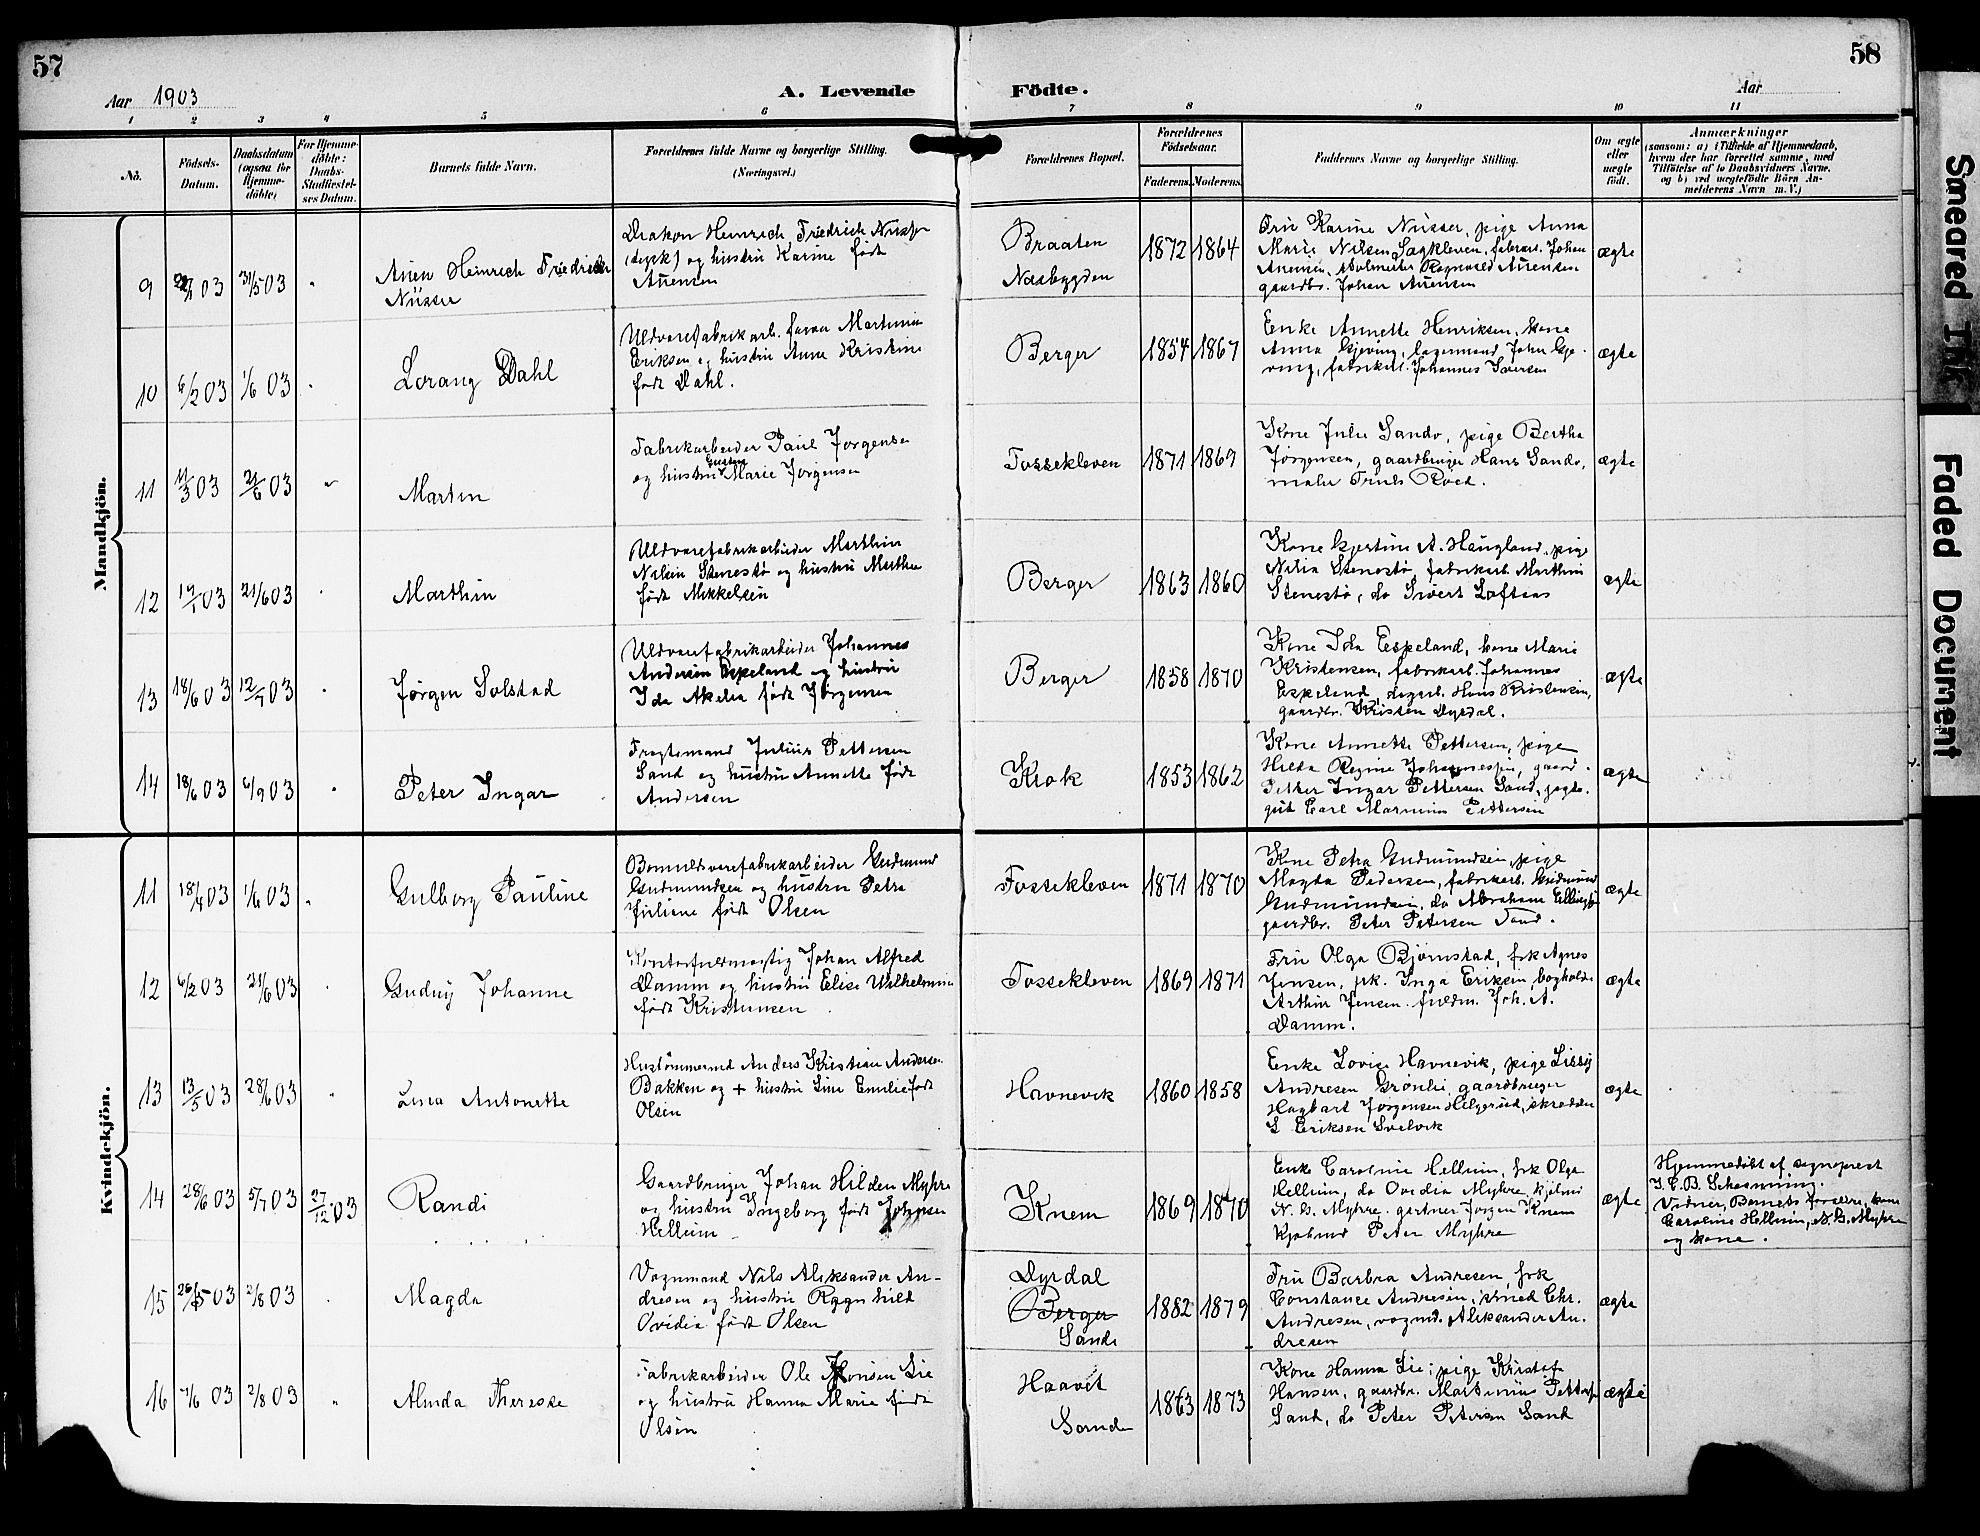 57
58
Aar 1903
A. Levende Födte.
Aar
1 2 3 4 5 6 7 8 9 10 11
No.
Födsels-Datum.
Daabsdatum (ogsaa for Hjemmedöbte)
For Hjemmedöbte: Daabs-Stadfæstelses Datum.
Barnets fulde Navn.
Forældrenes fulde Navne og borgerlige Stilling. (Næringsvei.)
Forældrenes Bopæl.
Forældrenes Födselsaar.
Faderens. Moderens.
Faddernes Navne og borgerlige Stilling.
Om ægte eller uægte födt.
Anmærkninger
(saasom: a) i Tilfælde af Hjemmedaab,
hvem der har forrettet samme, med
Tilföielse af to Daabsvidners Navne.
og b) ved uægtefödte Börn An-
melderens Navn m. V.)
Mandkjön.
9 03 31/5 03
Heinrich Friedrich
Nüsser
Diakon Heinrich Friedrich Nüsser
(tysk) og hustru Karine født
Aurensen
Braaten
Næsbygden
1872 1864
Fru Karine Nüsser, pige Anna
Marie Nilsen Sagkleven, fabrarb. Johan
gaardbr. Johan Aurensen
ægte
10 6/2 03 1/6 03
Lorang Dahl
Uldvarefabrikarb. Martinius
Eriksen og hustru Anne Kristine
født Dahl.
Berger
1854 1867
Enke Annette Henriksen, kone
Anna Gjeving, lagermand John Gje-
ving, fabrikarb. Johannes Iversen
ægte
11 03 21/6 03
Martin
Fabrikarbeider Paul Jørgensen
og hustru Gustava Marie Jørgensen
Fossekleven
1871 1869
Kone Julie Sando, pige Bertha
Jørgensen, gaardbruger Hans Sando,
maler Truls Röed.
ægte
12 03 21/6 03
Marthin
Uldvarefabrikarbeider Marthin
Nilsen Stenestø og hustru Marthea
født Mikkelsen
Berger
1863 1860
Kone Kjerstine A. Haugland, pige
Nilia Stenestø, fabrikarb. Marthin
Stenestø, do Sivert Loftsas
ægte
13 18/6 03 12/7 03
Jørgen Solstad
Uldvarefabrikarbeider Johannes
Andersen Espeland og hustru
Ida Akelie født Jørgensen
Berger
1858 1870
Kone Ida Espeland, kone Marie
Kristensen, fabrikarb. Johannes
Espeland, dagarb. Hans Kristensen,
gaardbr. Kristen Dyrdal.
ægte
14 18/6 03 6/9 03
Peter Ingar
Fragtemand Julius Pettersen
Sand og hustru Annette født
Andersen
Krok
1853 1862
Kone Annette Pettersen, pige
Hilda Regine Johannessen, gaard-
Petter Ingar Pettersen Sand, jagte-
gut Carl Marinius Pettersen
ægte
Kvindekjön.
11 18/4 03 1/6 03
Gulborg Pauline
Bomuldsvarefabrikarbeider Gudmund
Gudmundsen og hustru Petra
Juliane født Olsen
Fossekleven
1871 1870
Kone Petra Gudmundsen, pige
Magda Pedersen, fabrikarb. Gudmund
Gudmundsen, do Abraham
gaardbr. Peter Petersen Sand.
ægte
12 6/2 03 21/6 03
Gudny Johanne
Kontorfuldmægtig Johan Alfred
Damm og hustru Elise Wilhelmine
født Kristensen
Fossekleven
1869 1871
Fru Olga Bjørnstad, frk Agnes
Jensen, frk. Inga Eriksen bogholder
Arthur Jensen. fuldm. Joh. A.
Damm.
ægte
13 13/5 03 28/6 03
Lina Antonette
Hustømmermd Anders Kristian Andersen
Bakken og + hustru Line Emilie født
Olsen
Havnevik
1860 1858
Enke Lovise Havnevik, pige Lissy
Andresen Grønli, gaardbruger
Hagbart Jørgensen Helgerud, skredder
S Eriksen Svelvik
ægte
14 28/6 03 5/7 03 27/12 03
Randi
Gaardbruger Johan Hilden Myhre
og hustru Ingeborg født Johnsen
Hellum
Knem
1869 1870
Enke Caroline Hellum, frk Olga
Hellum, do Ovidia Myhre, kjøbmd
N. G. Myhre, gartner Jørgen Knem
kjøbmd Peter Myhre
ægte
Hjemmedøbt af sogneprest
Vidner, Barnets forældre, kone
Caroline Hellum, N. G. Myhre
og kone.
15 03 2/8 03
Magda
Vognmand Nils Aleksander An-
dresen og hustru Ragnhild
Ovidia født Olsen
Dyrdal
Berger
Sande
1882 1879
Fru Barbra Andresen, frk
Constance Andresen, smed Chr.
Andresen, vognmd. Aleksander An-
dresen
ægte
16 7/6 03 2/8 03
Alinda Therese
Fabrikarbeider Ole Lie
og hustru Hanna Marie født
Olsen
Haavet
Sande
1863 1873
Kone Hanna Lie, pige
Hansen, gaardbr. Martinius Petters
Sand, do Peter Petersen Sand
ægte
Smeared Ink
Faded Document